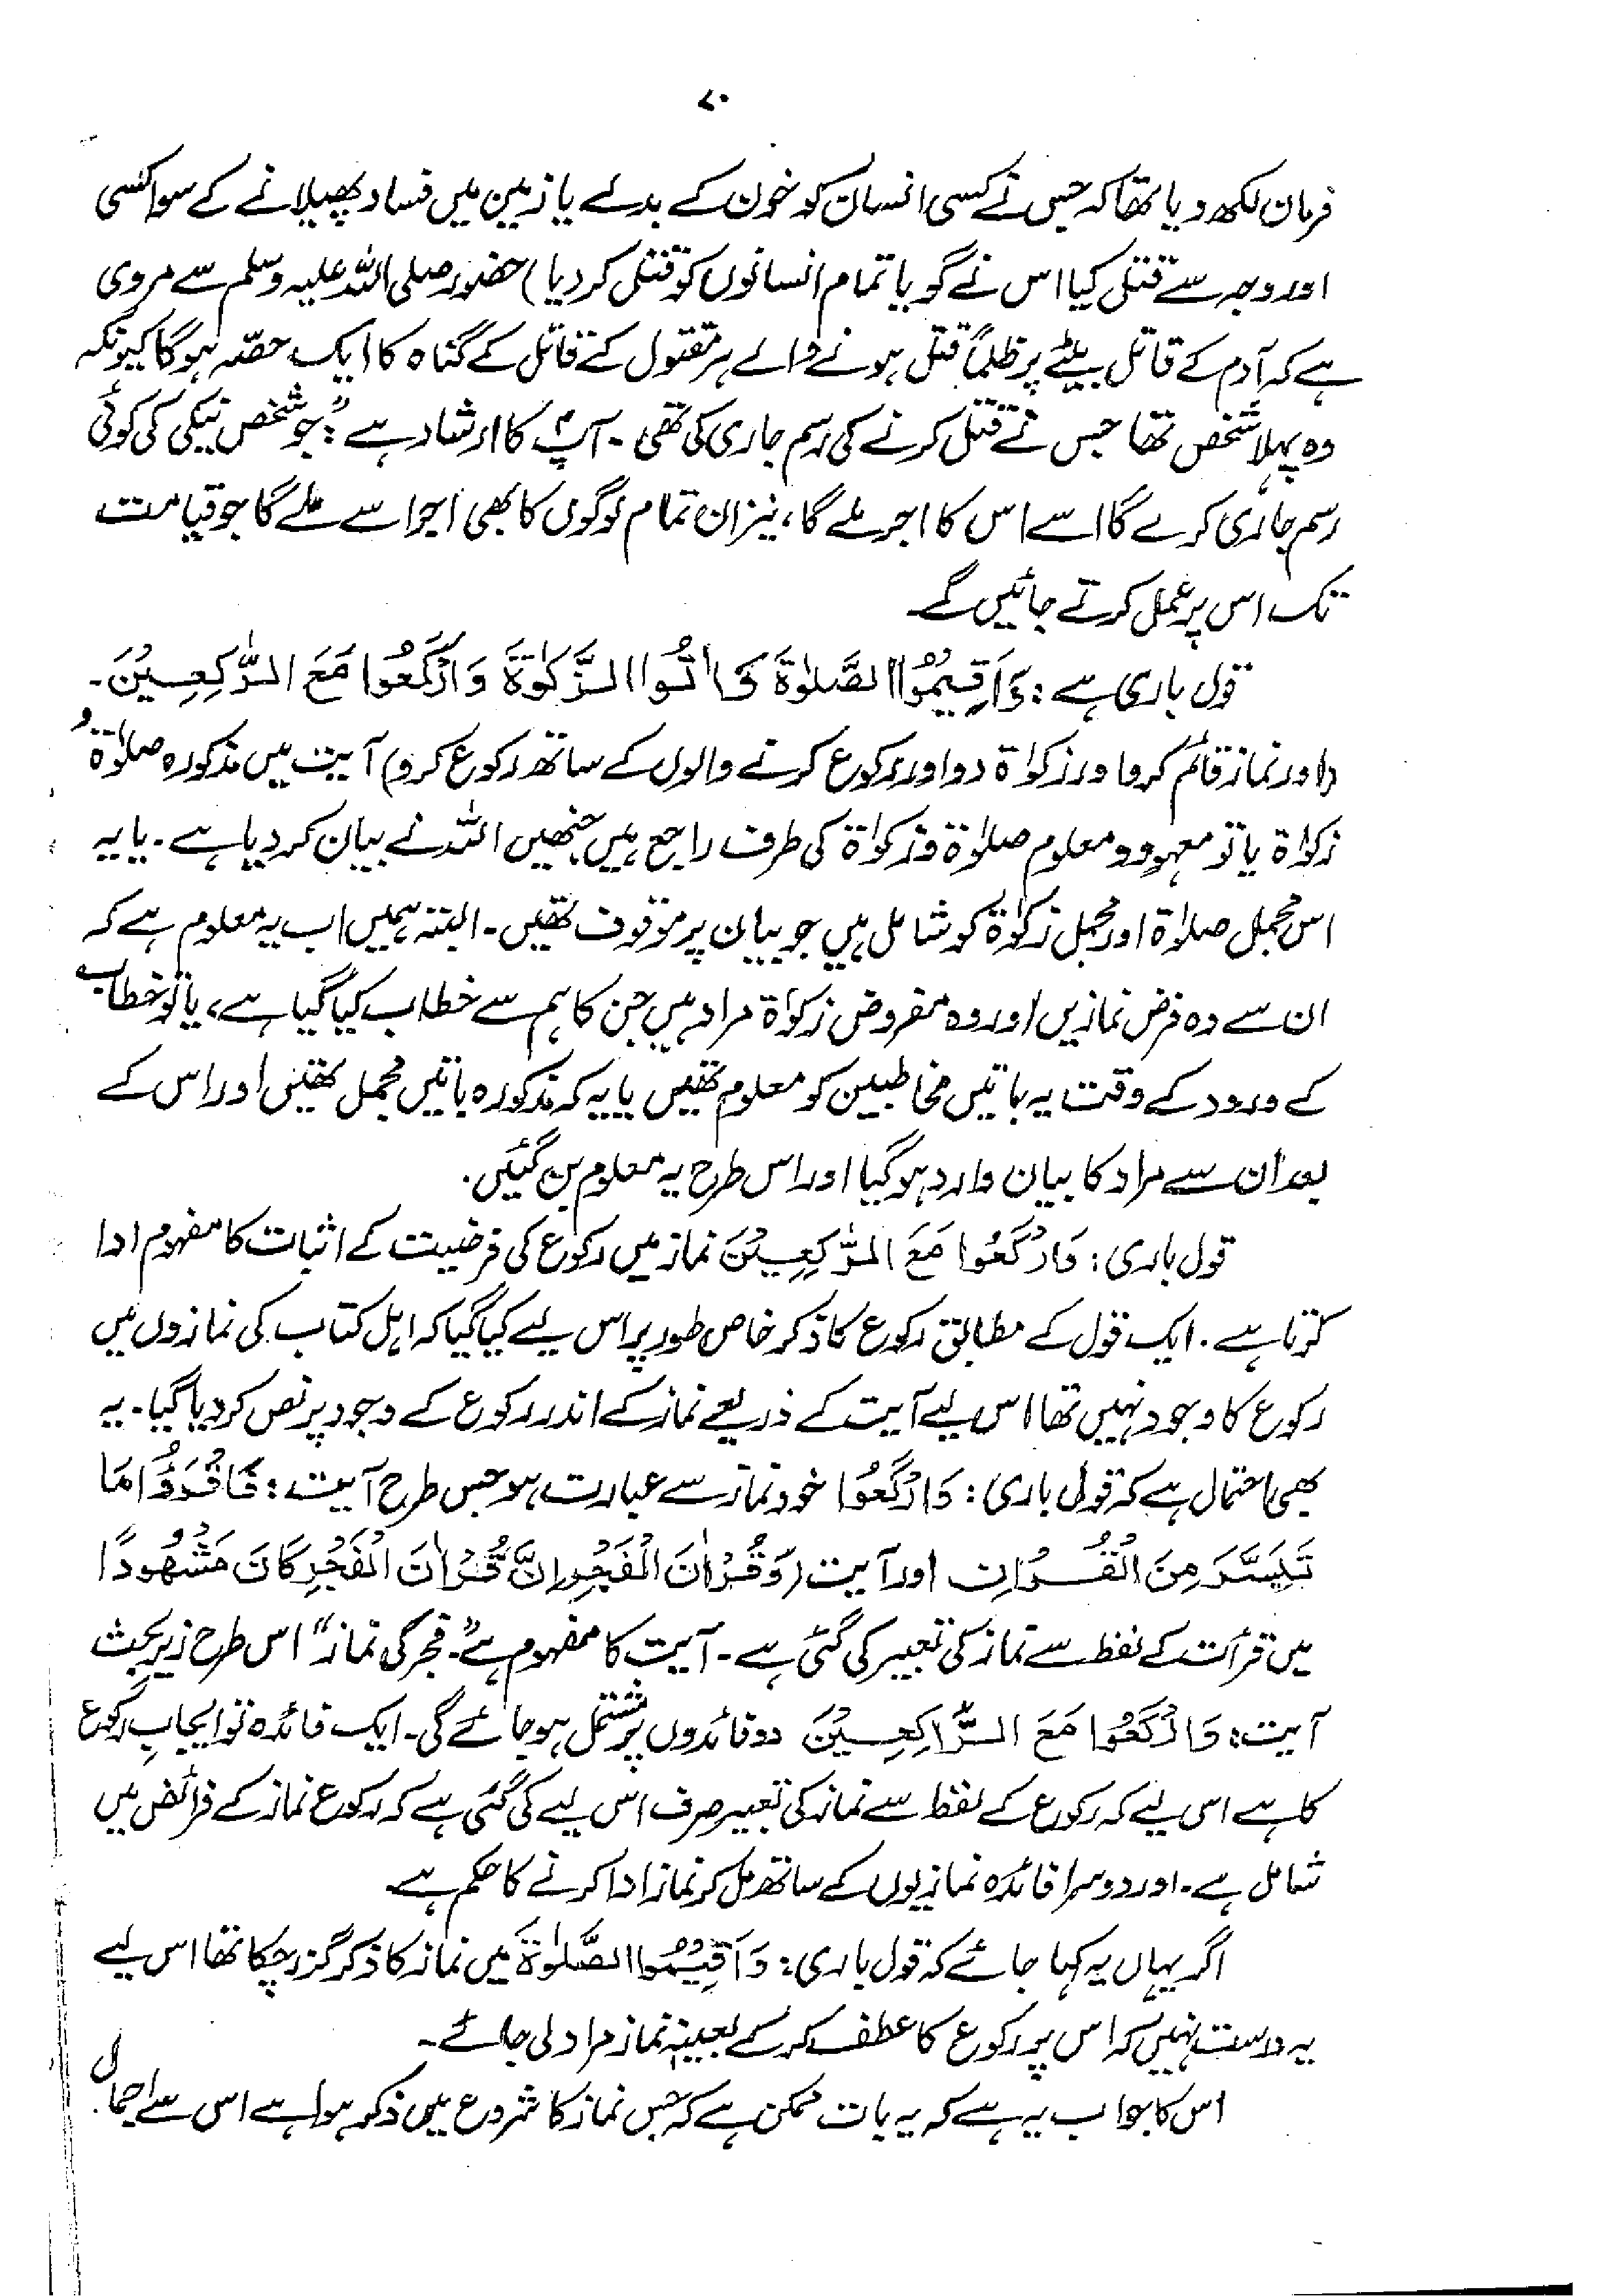 ۷۰
فرمان لکھ دیا تھا کہ جس نے کسی انسان کو خون کے بدلے یا زمین میں فساد پھیلانے کے سوا کسی
اور وجہ سے قتل کیا اس نے گویا تمام انسانوں کو قتل کر دیا) حضور صلی اللہ علیہ وسلم سے مروی
ہے کہ آدم کے قاتل بیٹے پر ظلماً قتل ہونے والے ہر مقتول کے قاتل کے گناہ کا ایک حصّہ ہوگا کیونکہ
وہ پہلا شخص تھا جس نے قتل کرنے کی رسم جاری کی تھی۔ آپؐ کا ارشاد ہے: "جو شخص نیکی کی کوئی
رسم جاری کرے گا اسے اس کا اجر ملے گا، نیز ان تمام لوگوں کا بھی اجر اسے ملے گا جو قیامت
تک اس پر عمل کرتے جائیں گے۔
قول باری ہے: وَاَقِيْمُوا الصَّلٰوةَ وَاٰتُوا الزَّكٰوةَ وَارْكَعُوا مَعَ الرّٰكِعِيْنَ۔
(اور نماز قائم کرو اور زکوٰۃ دو اور رکوع کرنے والوں کے ساتھ رکوع کرو) آیت میں مذکورہ صلوٰۃ و
زکوٰۃ یا تو معہود و معلوم صلوٰۃ و زکوٰۃ کی طرف راجع ہیں جنھیں اللہ نے بیان کر دیا ہے۔ یا یہ
اس مجمل صلوٰۃ اور مجمل زکوٰۃ کو شامل ہیں جو بیان پر موقوف تھیں۔ البتہ ہمیں اب یہ معلوم ہے کہ
ان سے وہ فرض نمازیں اور وہ مفروض زکوٰۃ مراد ہیں جن کا ہم سے خطاب کیا گیا ہے، یا تو خطاب
کے ورود کے وقت یہ باتیں مخاطبین کو معلوم تھیں یا یہ کہ مذکورہ باتیں مجمل تھیں اور اس کے
بعد ان سے مراد کا بیان وارد ہو گیا اور اس طرح یہ معلوم بن گئیں۔
قول باری: وَارْكَعُوا مَعَ الرّٰكِعِيْنَ نماز میں رکوع کی فرضیت کے اثبات کا مفہوم ادا
کرتا ہے۔ ایک قول کے مطابق رکوع کا ذکر خاص طور پر اس لیے کیا گیا کہ اہل کتاب کی نمازوں میں
رکوع کا وجود نہیں تھا اس لیے آیت کے ذریعے نماز کے اندر رکوع کے وجود پر نص کر دیا گیا۔ یہ
بھی احتمال ہے کہ قول باری: وَارْكَعُوا خود نماز سے عبارت ہو جس طرح آیت: فَاقْرَءُوْا مَا
تَيَسَّرَ مِنَ الْقُرْاٰنِ اور آیت (وَقُرْاٰنَ الْفَجْرِ اِنَّ قُرْاٰنَ الْفَجْرِ كَانَ مَشْهُوْدًا
میں قرأت کے لفظ سے نماز کی تعبیر کی گئی ہے۔ آیت کا مفہوم ہے "فجر کی نماز" اس طرح زیر بحث
آیت: وَارْكَعُوا مَعَ الرَّاكِعِيْنَ دو فائدوں پر مشتمل ہو جائے گی۔ ایک فائدہ تو ایجابِ رکوع
کا ہے اس لیے کہ رکوع کے لفظ سے نماز کی تعبیر صرف اس لیے کی گئی ہے کہ رکوع نماز کے فرائض میں
شامل ہے۔ اور دوسرا فائدہ نمازیوں کے ساتھ مل کر نماز ادا کرنے کا حکم ہے۔
اگر یہاں یہ کہا جائے کہ قول باری: وَاَقِيْمُوا الصَّلٰوةَ میں نماز کا ذکر گزر چکا تھا اس لیے
یہ درست نہیں کہ اس پر رکوع کا عطف کر کے بعینہٖ نماز مراد لی جائے۔
اس کا جواب یہ ہے کہ یہ بات ممکن ہے کہ جس نماز کا شروع میں ذکر ہوا ہے اس سے اجمال